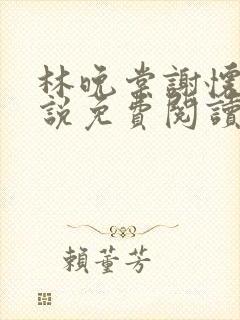 林晚棠謝懷
說免費閱讀
賴董芳